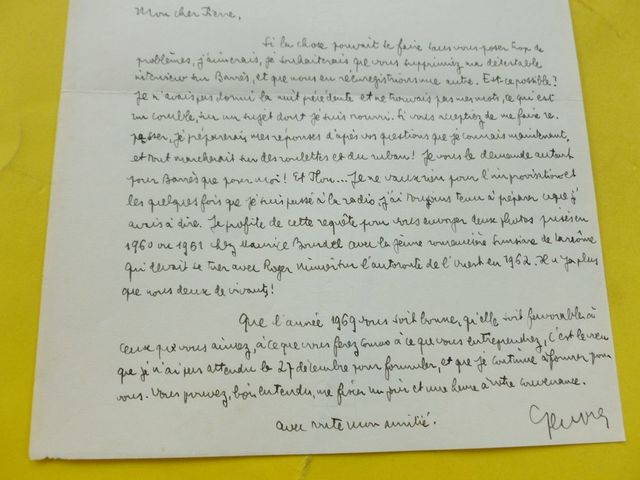 Mon cher Pierre,
Si la chose pouvait se faire sans vous poser trop de
problèmes, j'aimerais, je souhaiterais que vous supprimiez ma détestable
interview sur Barrès, et que nous en réenregistrions une autre. Est-ce possible?
Je n'avais pas dormi la nuit précédente et ne trouvais pas mes mots, ce qui est
un comble, sur un sujet dont je suis nourri. Si vous acceptiez de me faire re-
passer, je préparerais mes réponses d'après vos questions que je connais maintenant,
et tout marcherait sur des roulettes et du ruban! Je vous le demande autant
pour Barrès que pour moi! Et Flou... Je ne vaux rien pour l'improvisation et
les quelques fois que je suis passé à la radio, j'ai toujours tenu à préparer ce que j'
avais à dire. Je profite de cette requête pour vous envoyer deux photos prises en
1960 ou 1961 chez Maurice Bourdel avec la jeune romancière
qui devait se tuer avec Roger Nimier sur l'autoroute de l'ouest en 1962. Il n'y a plus
que nous deux de vivants!
Que l'année 1969 vous soit bonne, qu'elle soit favorable à
ceux que vous aimez, à ce que vous ferez comme à ce que vous entreprendrez, c'est le vœu
que je n'ai pas attendu le 27 décembre pour formuler, et que je continue à former pour
vous. Vous pouvez, bien entendu, me fixer un jour et une heure à votre convenance.
avec toute mon amitié.